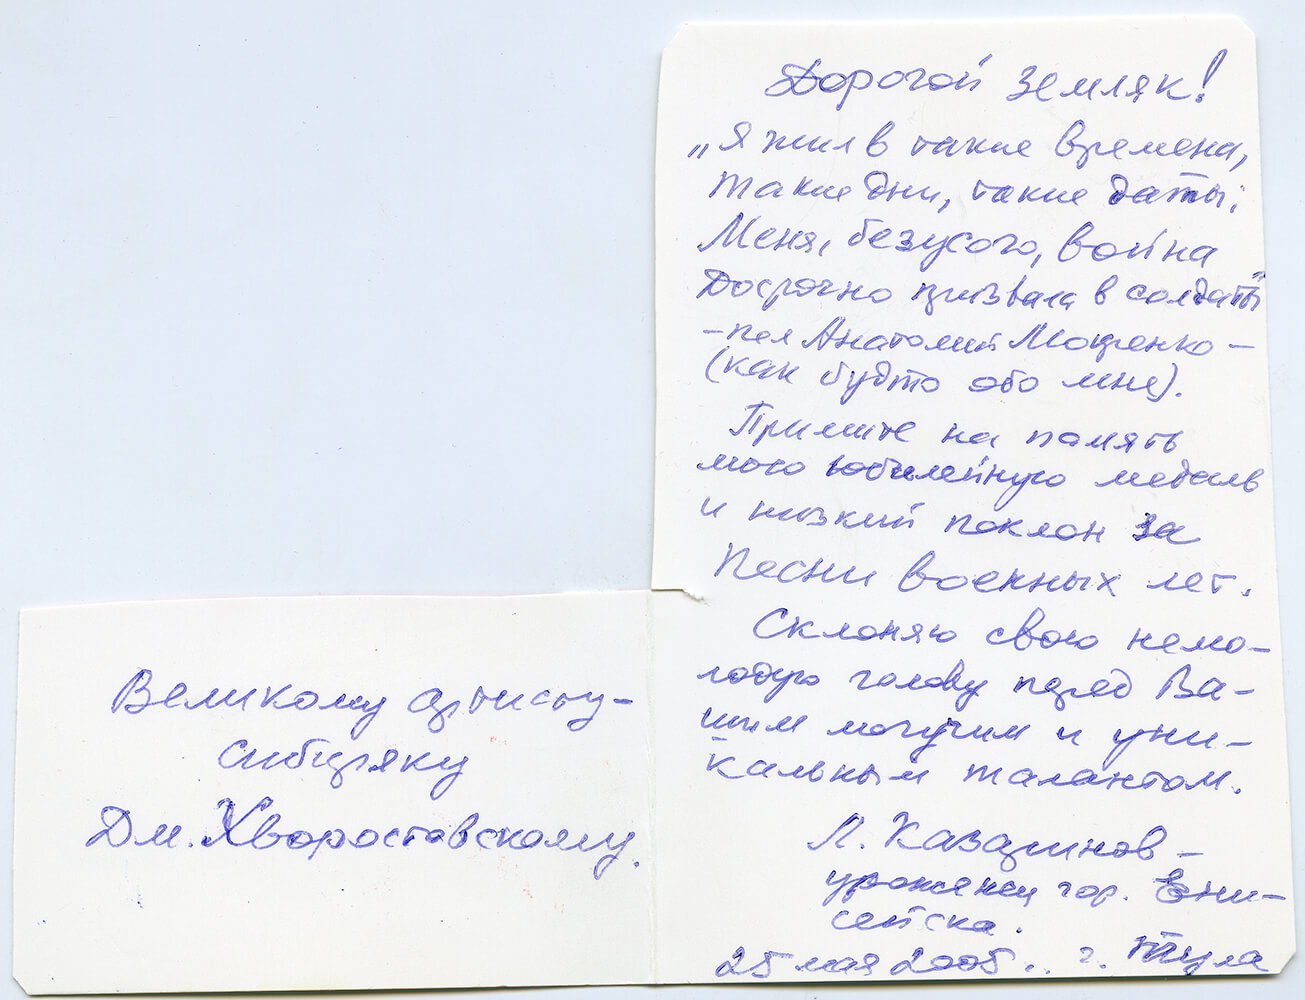 Великому артисту-
сибиряку
Дм. Хворостовскому.
Дорогой земляк!
„Я жил в такие времена,
Такие дни, такие даты:
Меня, безусого, война
Досрочно призвала в солдаты"
- пел Анатолий Мокренко -
(как будто обо мне).
Примите на память
мою юбилейную медаль
и низкий поклон за
Песни военных лет.
Склоняю свою немо-
лодую голову перед Ва-
шим могучим и уни-
кальным талантом.
Л. Казаринов -
уроженец гор. Ени-
сейска.
25 мая 2005.. г. Тула